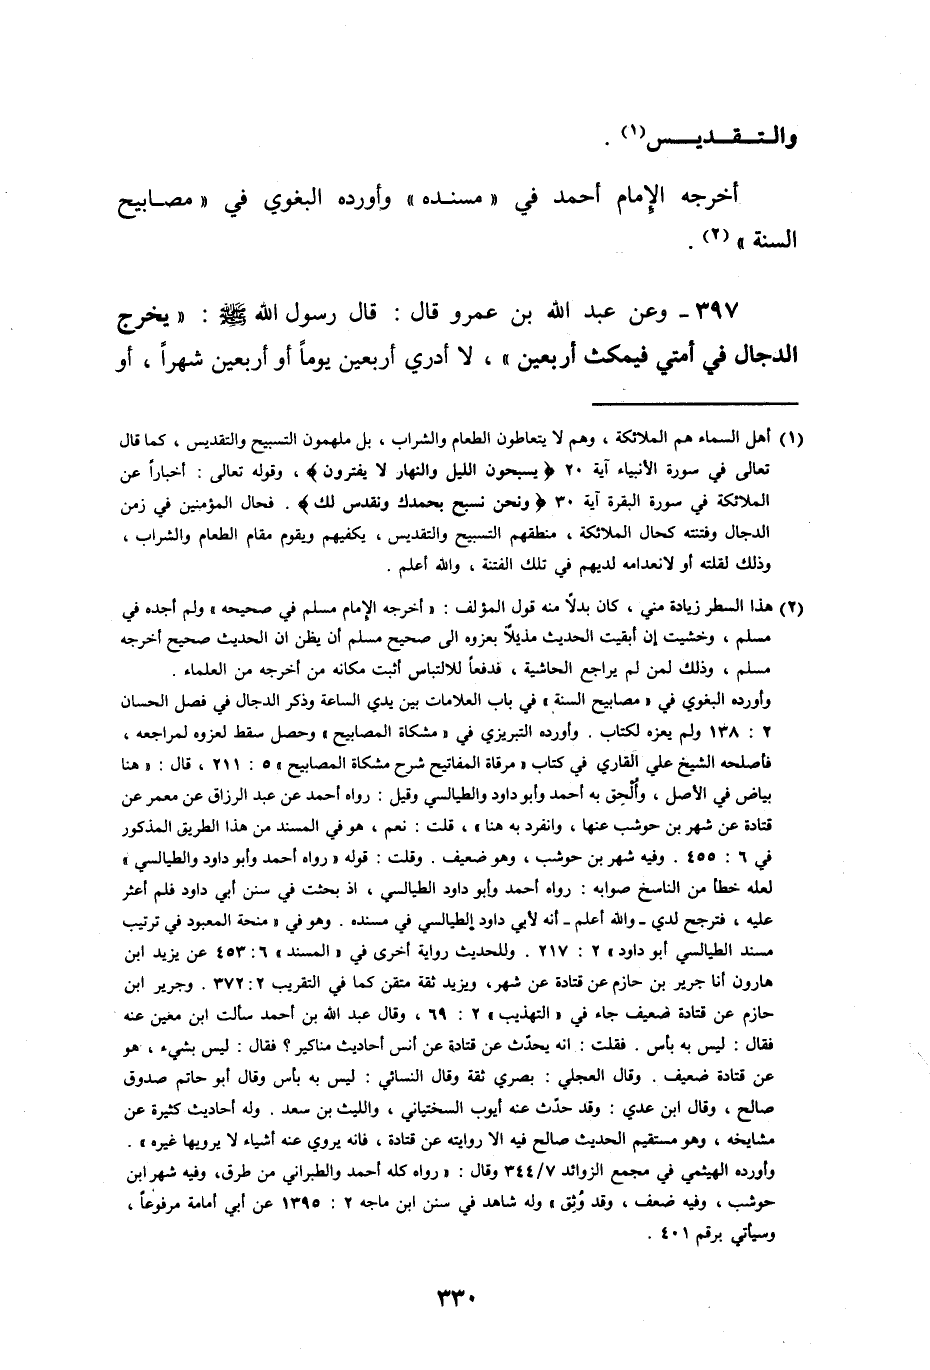 والتـقـديـس(١) .
أخرجه الإمام أحمد في « مسنده» وأورده البغوي في « مصـابيح
السنة » (٢) .
٣٩٧ ـ وعن عبد الله بن عمرو قال : قال رسول الله ﷺ : « يخرج
الدجال في أمتي فيمكث أربعين » ، لا أدري أربعين يوماً أو أربعين شهراً ، أو
(١) أهل السماء هم الملائكة ، وهم لا يتعاطون الطعام والشراب ، بل ملهمون التسبيح والتقديس ، كما قال
تعالى في سورة الأنبياء آية ٢٠ ﴿ يسبحون الليل والنهار لا يفترون ﴾ ، وقوله تعالى : أخباراً عن
الملائكة في سورة البقرة آية ٣٠ ﴿ ونحن نسبح بحمدك ونقدس لك ﴾ . فحال المؤمنين في زمن
الدجال وفتنته كحال الملائكة ، منطقهم التسبيح والتقديس ، يكفيهم ويقوم مقام الطعام والشراب ،
وذلك لقلته أو لانعدامه لديهم في تلك الفتنة ، والله أعلم .
(٢) هذا السطر زيادة مني ، كان بدلًا منه قول المؤلف : « أخرجه الإمام مسلم في صحيحه » ولم أجده في
مسلم ، وخشيت إن أبقيت الحديث مذيلًا بعزوه الى صحيح مسلم أن يظن ان الحديث صحيح أخرجه
مسلم ، وذلك لمن لم يراجع الحاشية ، فدفعاً للالتباس أثبت مكانه من أخرجه من العلماء .
وأورده البغوي في « مصابيح السنة » في باب العلامات بين يدي الساعة وذكر الدجال في فصل الحسان
٢ : ١٣٨ ولم يعزه لكتاب . وأورده التبريزي في « مشكاة المصابيح » وحصل سقط لعزوه لمراجعه ،
فأصلحه الشيخ علي القاري في كتاب « مرقاة المفاتيح شرح مشكاة المصابيح » ٥ : ٢١١ ، قال : « هنا
بياض في الأصل ، وأُلْحِق به أحمد وأبو داود والطيالسي وقيل : رواه أحمد عن عبد الرزاق عن معمر عن
قتادة عن شهر بن حوشب عنها ، وانفرد به هنا » ، قلت : نعم ، هو في المسند من هذا الطريق المذكور
في ٦ : ٤٥٥ . وفيه شهر بن حوشب ، وهو ضعيف . وقلت : قوله « رواه أحمد وأبو داود والطيالسي »
لعله خطأ من الناسخ صوابه : رواه أحمد وأبو داود الطيالسي ، اذ بحثت في سنن أبي داود فلم أعثر
عليه ، فترجح لدي ـ والله أعلم ـ أنه لأبي داود الطيالسي في مسنده . وهو في « منحة المعبود في ترتيب
مسند الطيالسي أبو داود » ٢ : ٢١٧ . وللحديث رواية أخرى في « المسند » ٦: ٤٥٣ عن يزيد ابن
هارون أنا جرير بن حازم عن قتادة عن شهر، ويزيد ثقة متقن كما في التقريب ٢: ٣٧٢ . وجرير ابن
حازم عن قتادة ضعيف جاء في « التهذيب » ٢ : ٦٩ ، وقال عبد الله بن أحمد سألت ابن معين عنه
فقال : ليس به بأس . فقلت : انه يحدّث عن قتادة عن أنس أحاديث مناكير ؟ فقال : ليس بشيء ، هو
عن قتادة ضعيف . وقال العجلي : بصري ثقة وقال النسائي : ليس به بأس وقال أبو حاتم صدوق
صالح ، وقال ابن عدي : وقد حدّث عنه أيوب السختياني ، والليث بن سعد . وله أحاديث كثيرة عن
مشايخه ، وهو مستقيم الحديث صالح فيه الا روايته عن قتادة ، فانه يروي عنه أشياء لا يرويها غيره » .
وأورده الهيثمي في مجمع الزوائد ٣٤٤/٧ وقال : « رواه كله أحمد والطبراني من طرق، وفيه شهر ابن
حوشب ، وفيه ضعف ، وقد وُثِق » وله شاهد في سنن ابن ماجه ٢ : ١٣٩٥ عن أبي أمامة مرفوعاً ،
وسيأتي برقم ٤٠١ .
٣٣٠